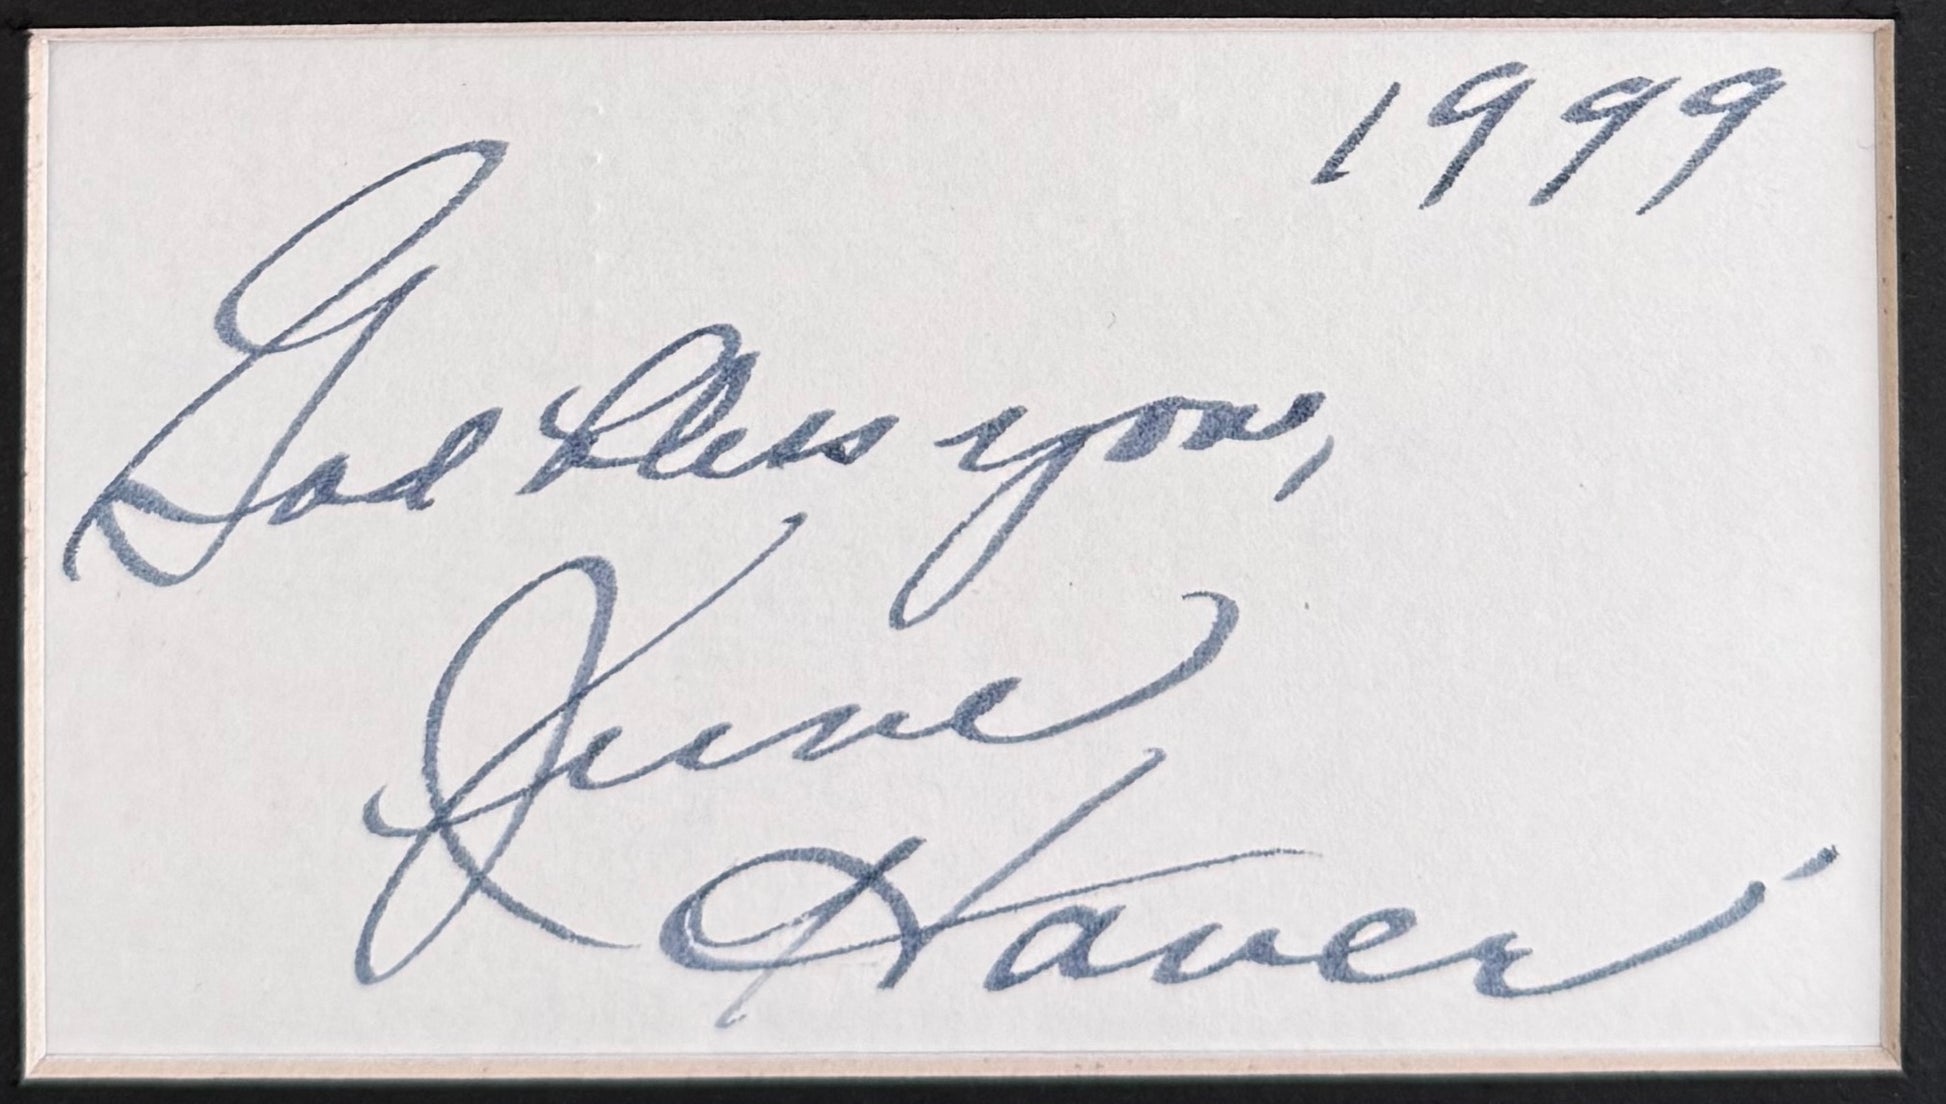 1999
God bless you,
June
Haver